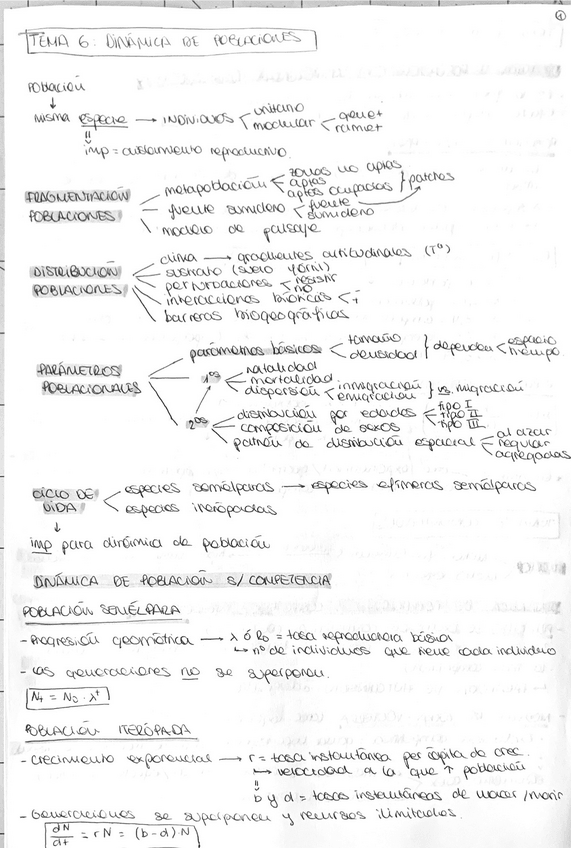 1
TEMA 6: DINÁMICA DE POBLACIONES
Población
↓
misma especie → INDIVIDUOS < unitario
modular < genet
ramet
imp = aislamiento reproductivo.
FRAGMENTACIÓN POBLACIONES
metapoblación < zonas no aptas
aptas
aptas ocupadas } patches
fuente sumidero < fuente
sumidero
modelo de paisaje
DISTRIBUCIÓN POBLACIONES
clima → gradientes altitudinales (Tª)
sustrato (suelo y/o ni)
perturbaciones < resistir
no
interacciones bióticas < + -
barreras biogeográficas
PARÁMETROS POBLACIONALES
parámetros básicos < tamaño
densidad } dependen < espacio
tiempo.
1ºˢ
natalidad
mortalidad
dispersión < inmigración
emigración } vs. migración
2ºˢ
distribución por edades < tipo I
tipo II
tipo III
composición de sexos
patrón de distribución espacial < al azar
regular
agregadas
CICLO DE VIDA
especies semélparas → especies efímeras semélparas
especies iteróparas
↓
imp para dinámica de población
DINÁMICA DE POBLACIÓN S/ COMPETENCIA
POBLACIÓN SEMÉLPARA
- Progresión geométrica → λ ó R₀ = tasa reproductora básica
↳ nº de individuos que tiene cada individuo
- Las generaciones no se superponen.
Nt = N₀ · λᵗ
POBLACIÓN ITERÓPARA
- Crecimiento exponencial → r = tasa instantánea per cápita de crec.
↳ velocidad a la que ↑ población
b y d = tasas instantáneas de nacer/morir
- Generaciones se superponen y recursos ilimitados.
dN/dt = rN = (b-d)N